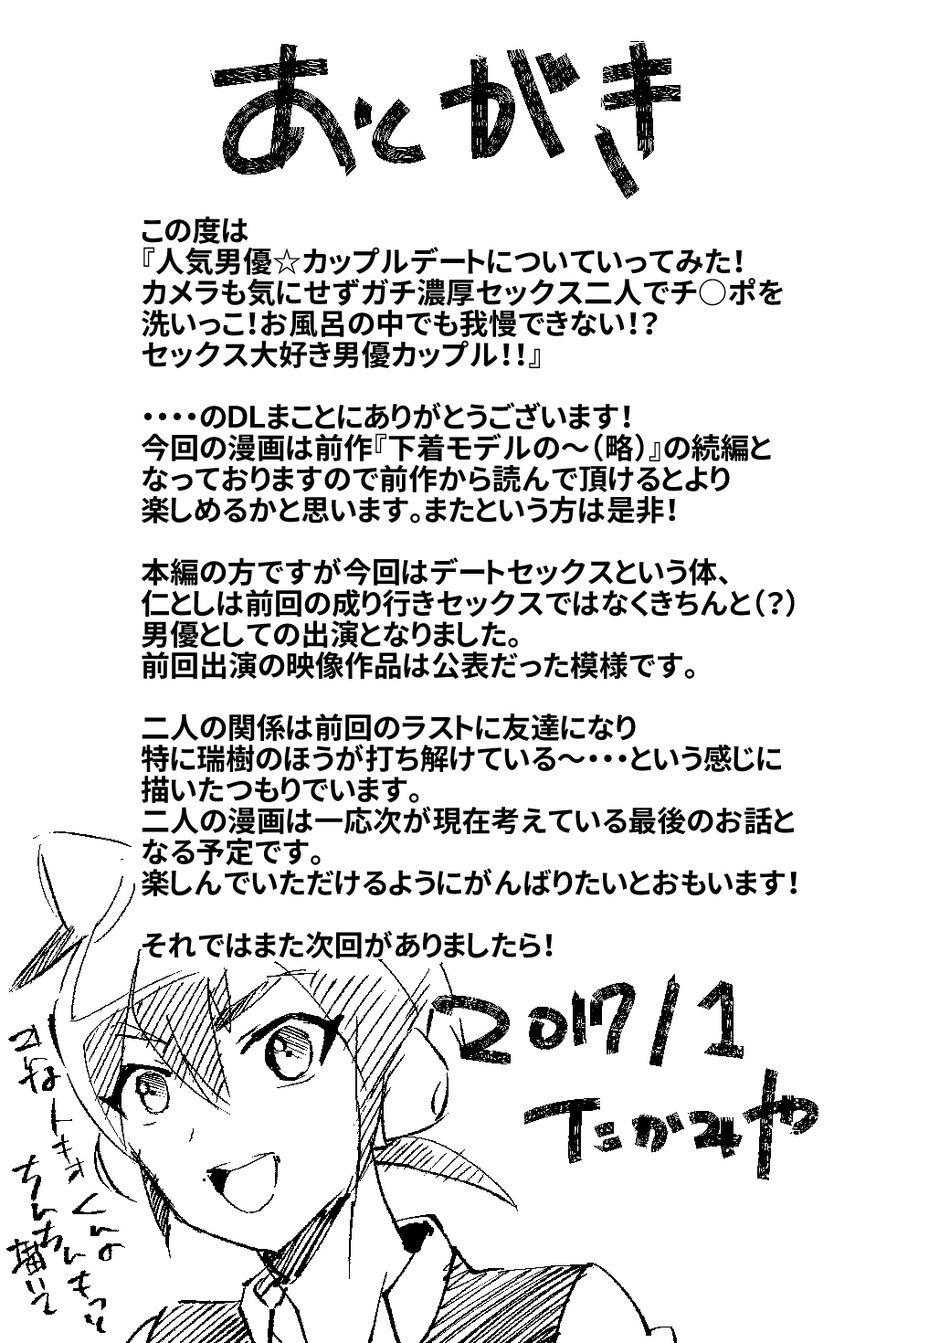 あとがき
この度は
『人気男優☆カップルデートについていってみた！
カメラも気にせずガチ濃厚セックス二人でチ〇ポを
洗いっこ！お風呂の中でも我慢できない！？
セックス大好き男優カップル！！』
・・・・のDLまことにありがとうございます！
今回の漫画は前作『下着モデルの～（略）』の続編と
なっておりますので前作から読んで頂けるとより
楽しめるかと思います。またという方は是非！
本編の方ですが今回はデートセックスという体、
仁としは前回の成り行きセックスではなくきちんと（？）
男優としての出演となりました。
前回出演の映像作品は公表だった模様です。
二人の関係は前回のラストに友達になり
特に瑞樹のほうが打ち解けている～・・・という感じに
描いたつもりでいます。
二人の漫画は一応次が現在考えている最後のお話と
なる予定です。
楽しんでいただけるようにがんばりたいとおもいます！
それではまた次回がありましたら！
2017/1
たかみや
ちんちんもっと
描いて